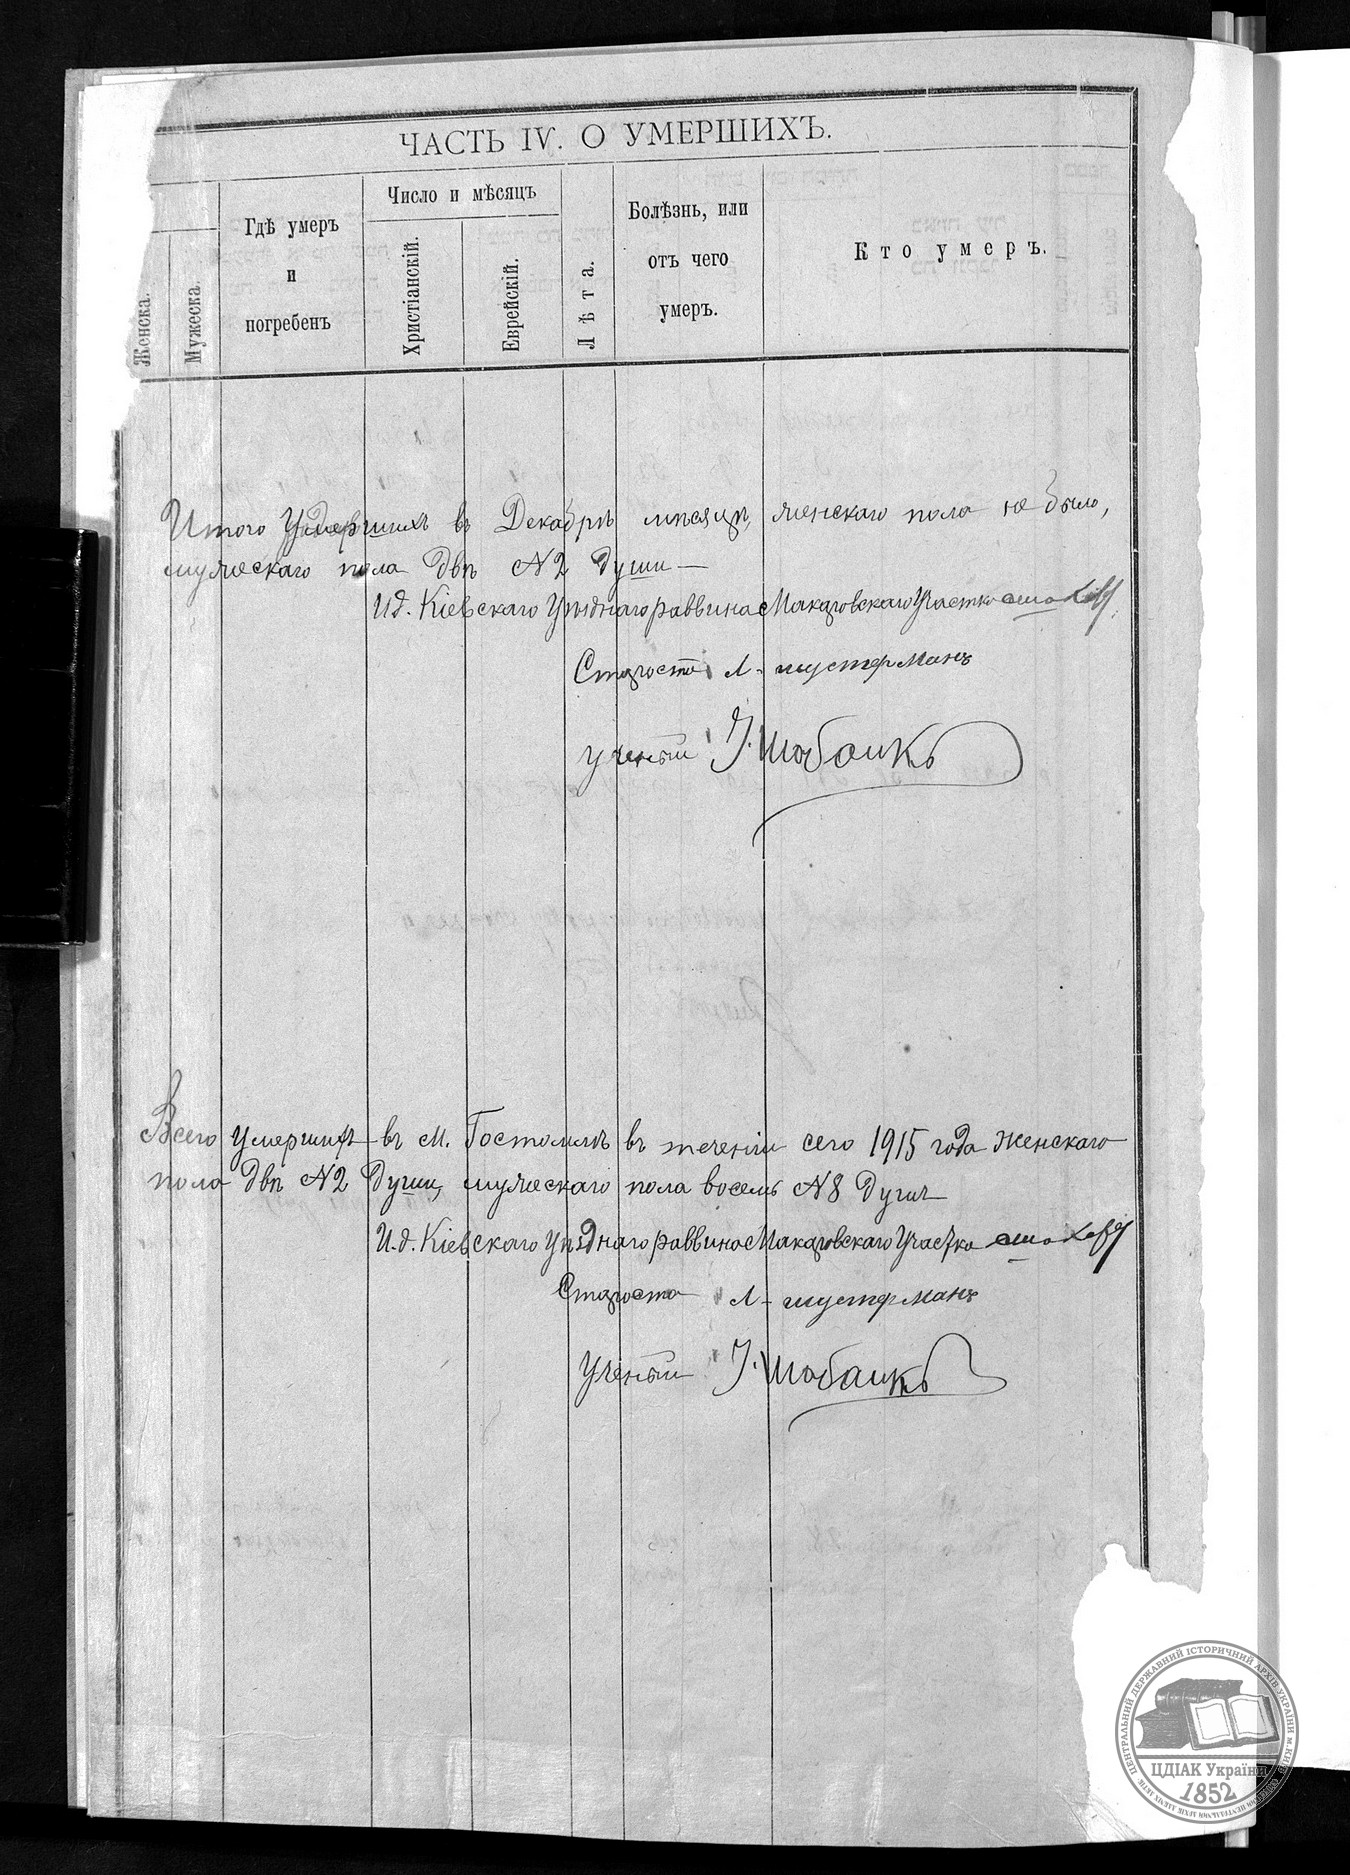 ЧАСТЬ IV. О УМЕРШИХЪ.
Женска.
Мужеска.
Гдѣ умеръ
и
погребенъ
Число и мѣсяцъ
Христіанскій.
Еврейскій.
Лѣта.
Болѣзнь, или
отъ чего
умеръ.
Кто умеръ.
Итого Умершихъ въ Декабрѣ мѣсяцѣ, женскаго пола не было,
мужескаго пола двѣ №2 души —
И.д. Кіевскаго Уѣзднаго раввина Макаровскаго Участка
Староста Л. Шустерманъ
Ученый
Всего умершихъ въ м. Гостомлѣ въ теченіи сего 1915 года Женскаго
пола двѣ №2 Души, мужескаго пола восемь №8 Душъ
И.д. Кіевскаго Уѣзднаго раввина Макаровскаго Участка
Староста Л. Шустерманъ
Ученый
ЦЕНТРАЛЬНИЙ ДЕРЖАВНИЙ ІСТОРИЧНИЙ АРХІВ УКРАЇНИ м.КИЇВ
ЦДІАК України
1852